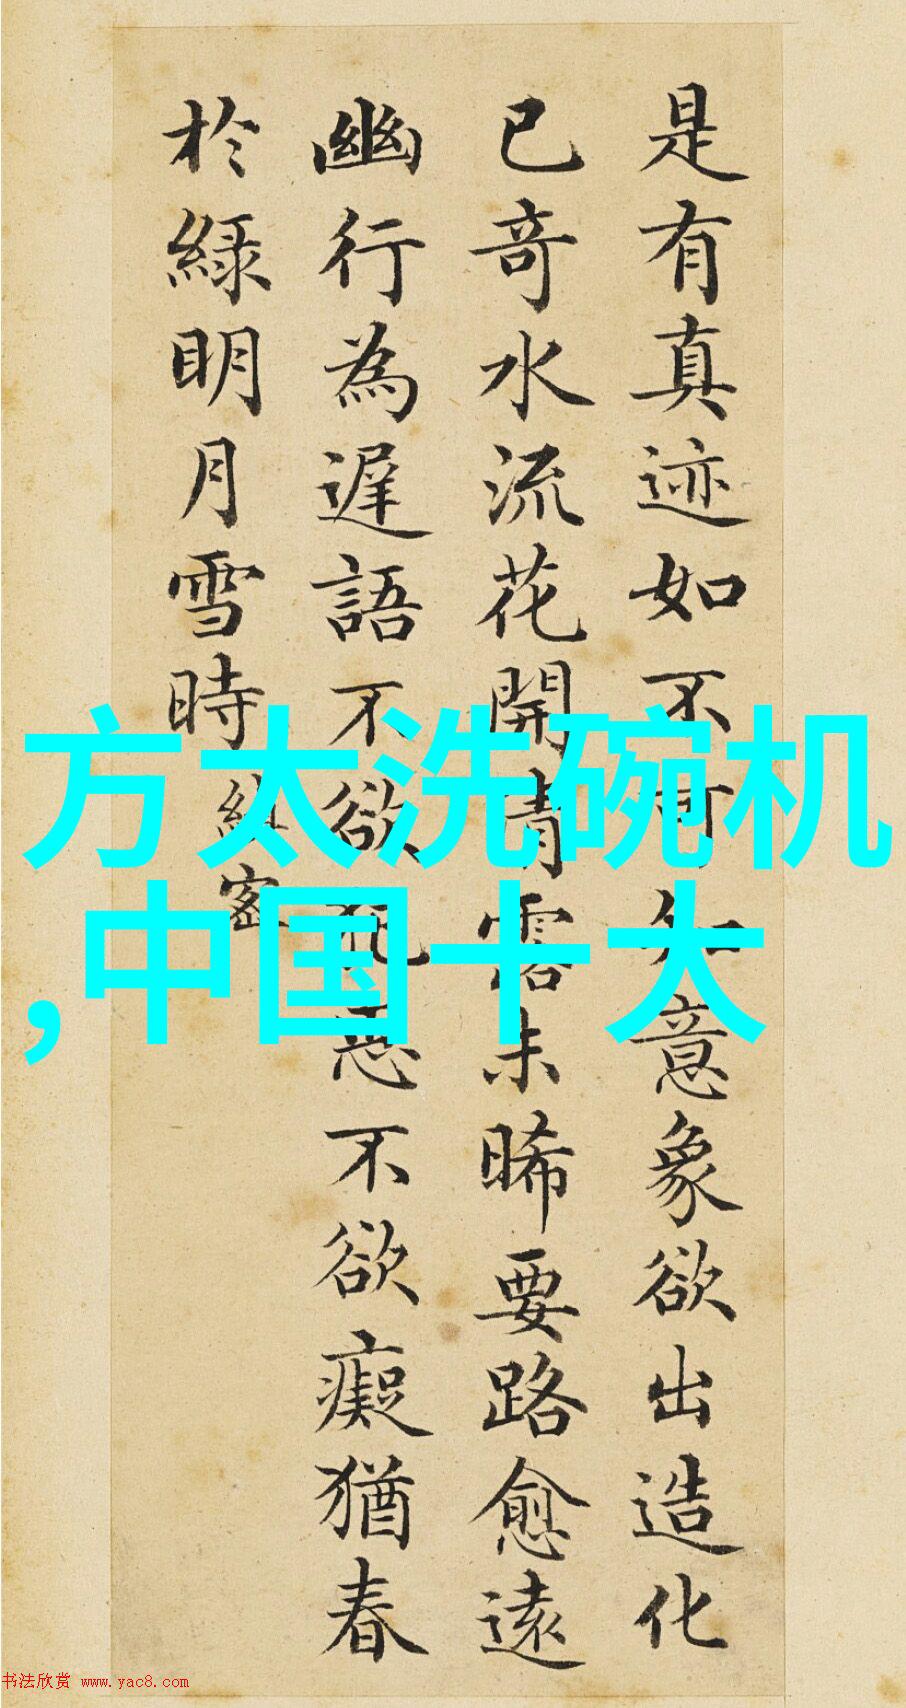 是有真迹如不可知意象欲出造化
已奇水流花開清露未晞要路愈遠
幽行為遲語不欲犯惡不欲癡猶春
於綠明月雪時縝密
方太洗碗机
,中国十大
书法欣赏 www.yac8.com